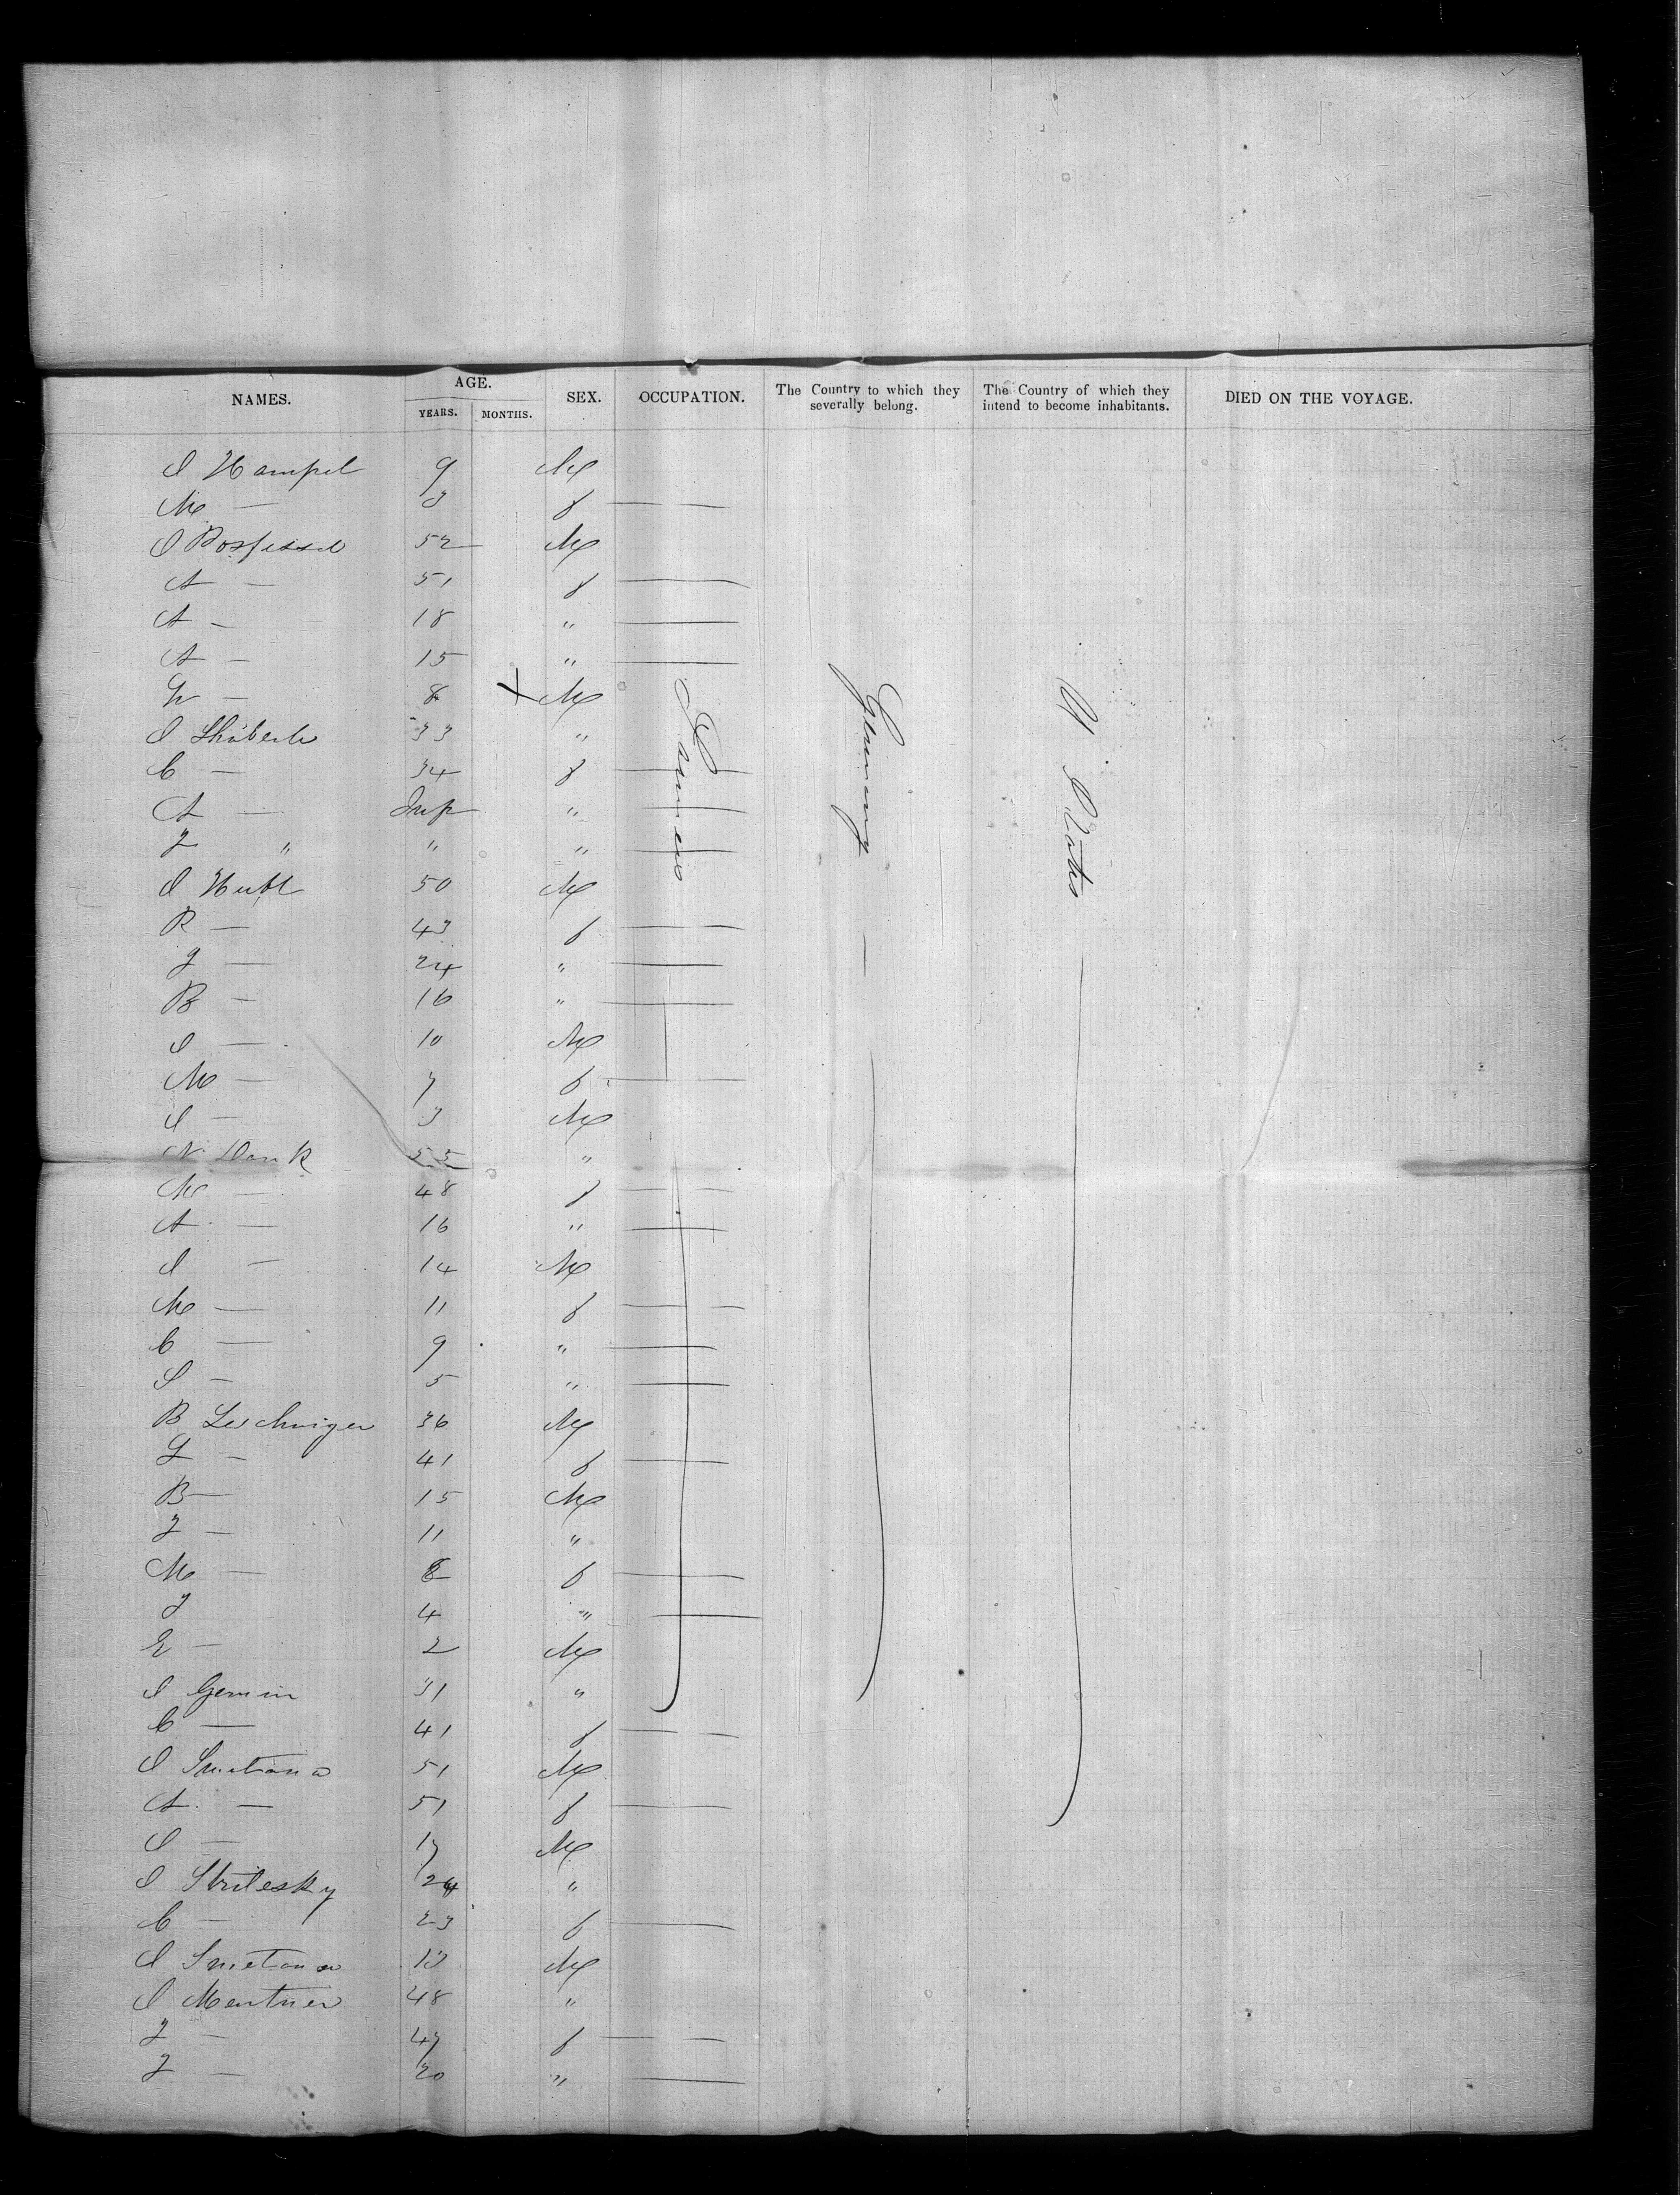 NAMES. AGE. YEARS. MONTHS. SEX. OCCUPATION. The Country to which they severally belong. The Country of which they intend to become inhabitants. DIED ON THE VOYAGE.
J Hampel 9 M
M — 3 f —
J 52 M
A — 51 f —
A — 18 " —
A — 15 " —
W — 8 X M
J 33 "
C — 34 f —
A — Inf " —
J " " " —
J Hubl 50 M
R — 43 f —
J — 24 " —
B — 16 " —
J — 10 M
M — 7 f —
J — 3 M
N. Dank 55 "
M — 48 f —
A — 16 " —
J — 14 M
M — 11 f —
C — 9 " —
S — 5 " —
B Leschniger 36 M
L — 41 f —
B — 15 M
J — 11 "
M — 8 f —
J 4 " —
E — 2 M
J Gemin 31 "
C — 41 f —
J Smetana 51 M
A. — 51 f —
J — 17 M
J Stritesky 24 "
C — 23 f —
J Smetana 13 M
J Mentner 48 "
J — 47 f —
J — 20 " —
Farmers
Germany —
U States